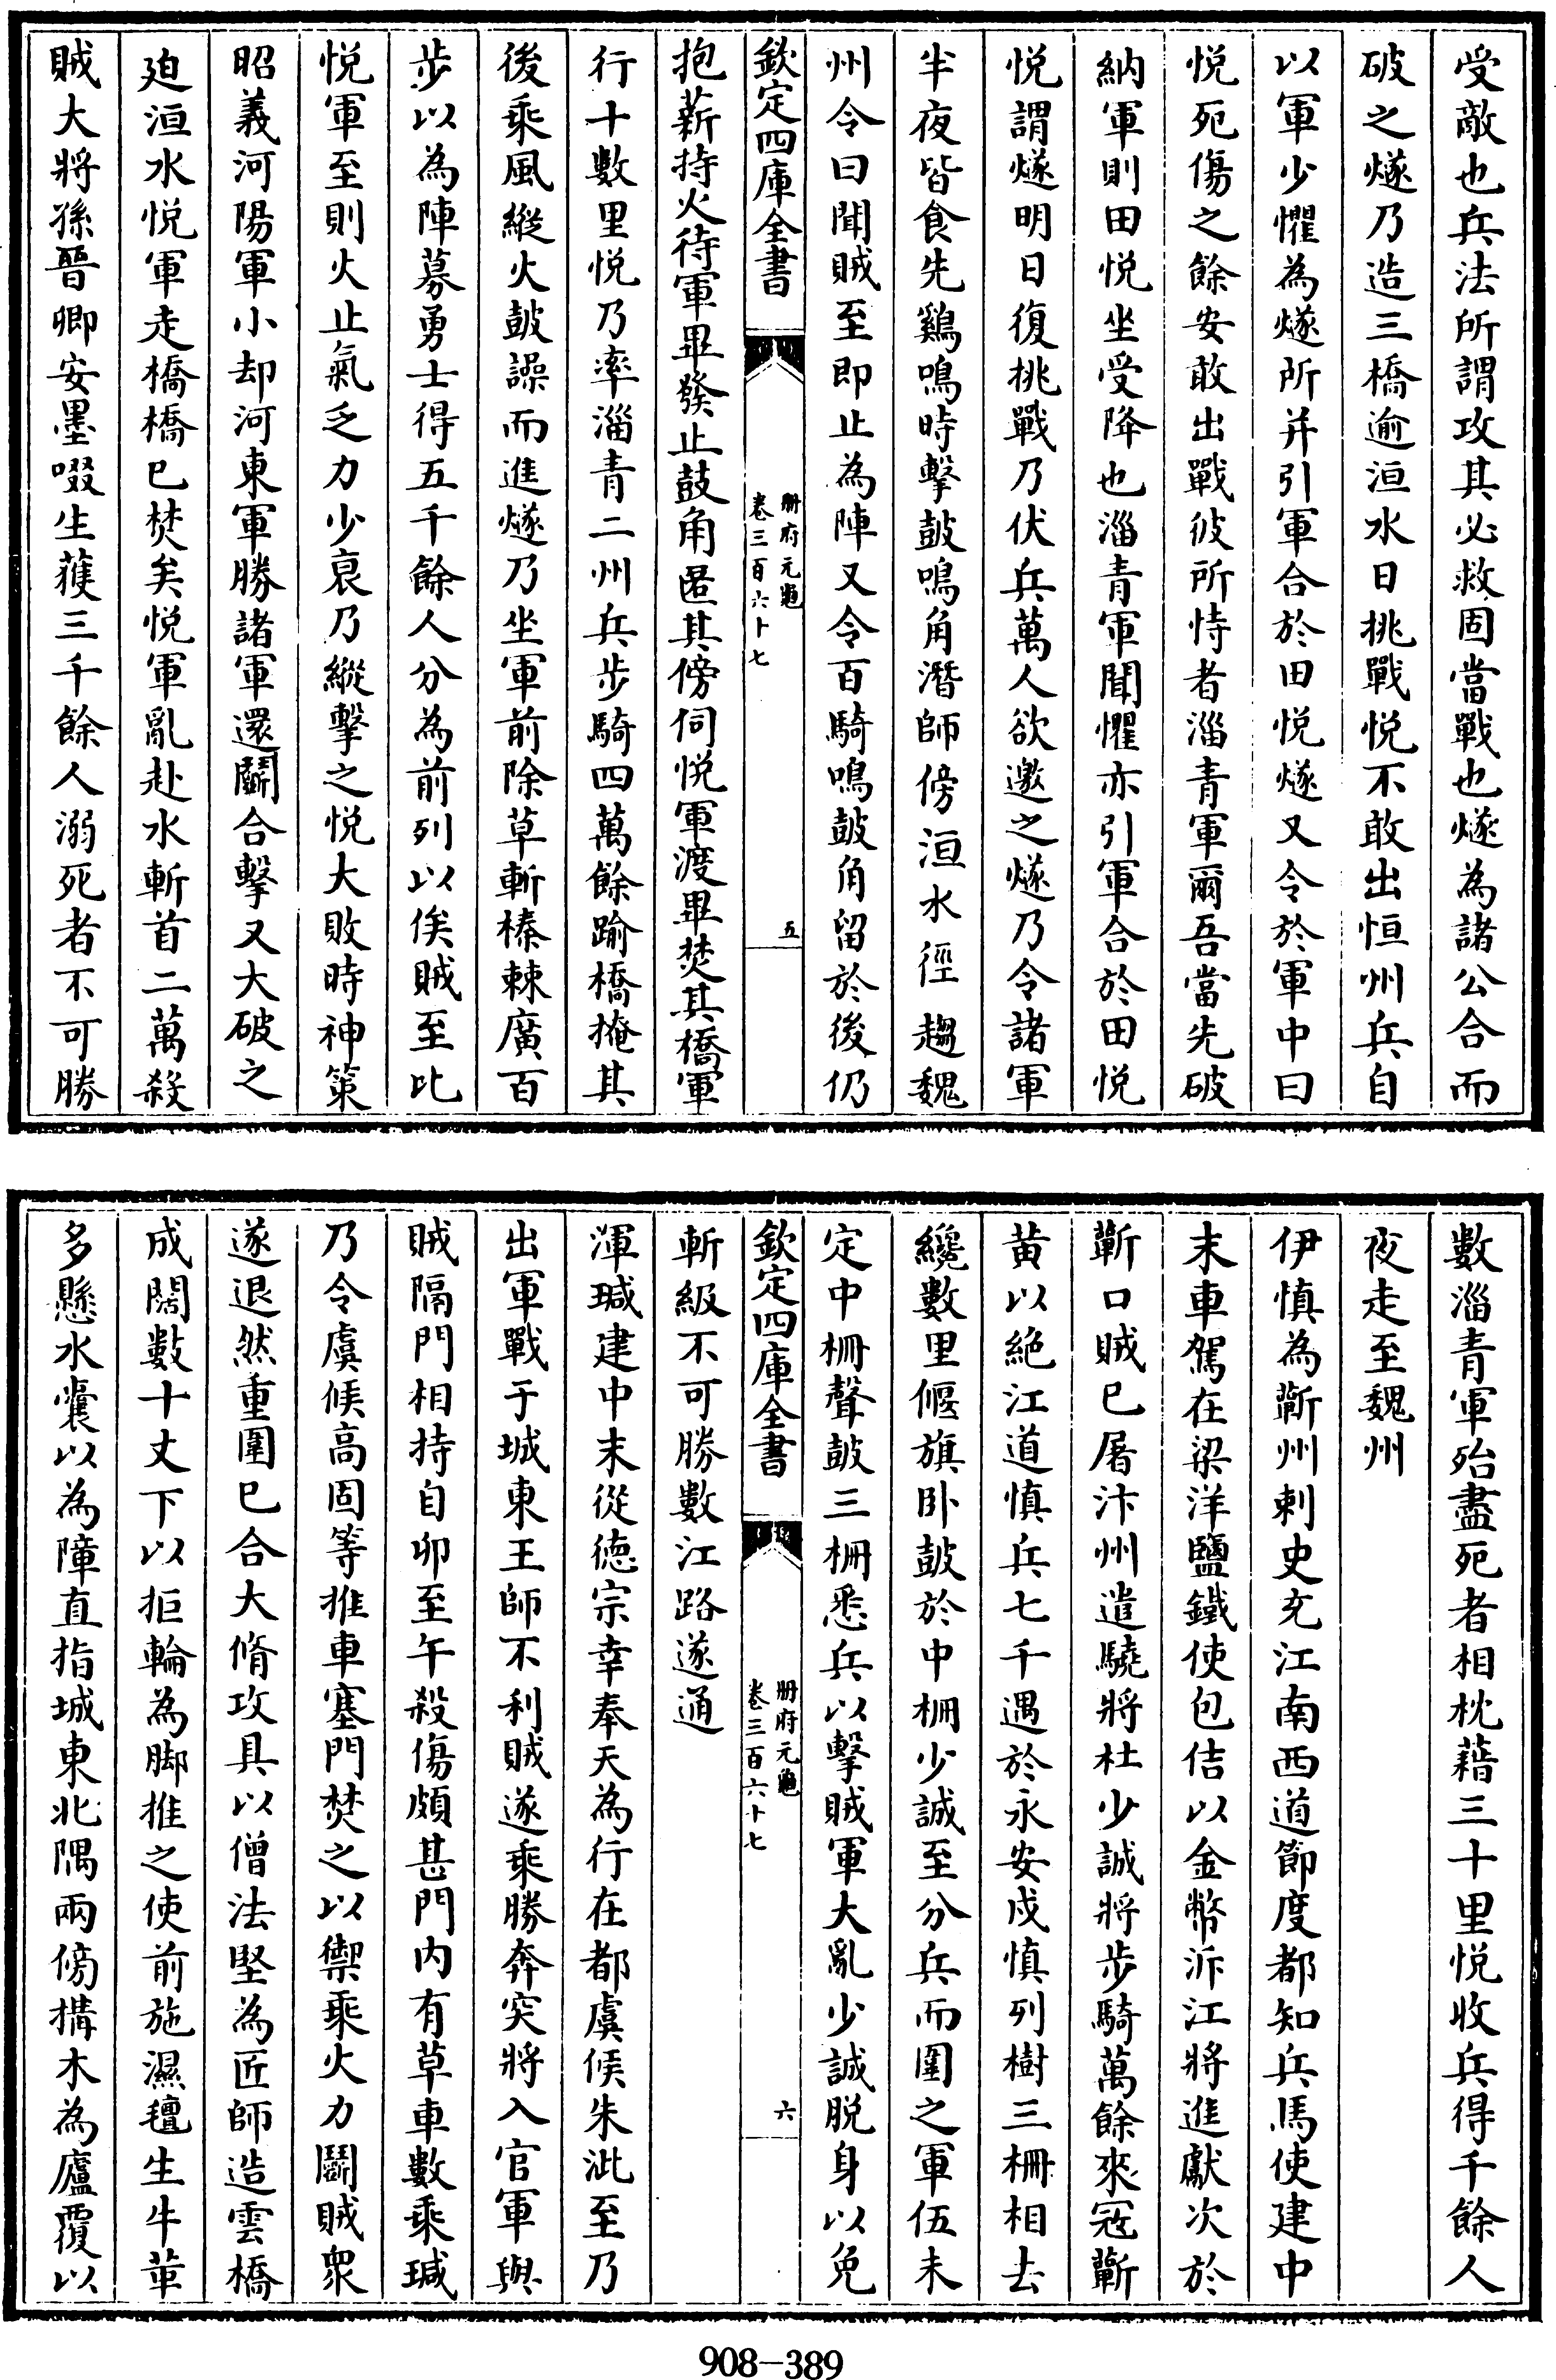 受敵也兵法所謂攻其必救固當戰也燧為諸公合而
破之燧乃造三橋逾洹水日挑戰悅不敢出恒州兵自
以軍少懼為燧所并引軍合於田悅燧又令於軍中曰
悅死傷之餘安敢出戰彼所恃者淄青軍爾吾當先破
納軍則田悅坐受降也淄青軍聞懼亦引軍合於田悅
悅謂燧明日復挑戰乃伏兵萬人欲邀之燧乃令諸軍
半夜皆食先鷄鳴時擊鼓鳴角潛師傍洹水徑趨魏
州令曰聞賊至即止為陣又令百騎鳴鼓角留於後仍
欽定四庫全書
册府元龜
卷三百六十七
五
抱薪持火待軍畢發止鼓角匿其傍伺悅軍渡畢焚其橋軍
行十數里悅乃率淄青二州兵步騎四萬餘踰橋掩其
後乘風縱火鼓譟而進燧乃坐軍前除草斬榛棘廣百
步以為陣募勇士得五千餘人分為前列以俟賊至比
悅軍至則火止氣乏力少衰乃縱擊之悅大敗時神策
昭義河陽軍小却河東軍勝諸軍還鬭合擊又大破之
廹洹水悅軍走橋橋已焚矣悅軍亂赴水斬首二萬殺
賊大將孫晉卿安墨啜生獲三千餘人溺死者不可勝
數淄青軍殆盡死者相枕藉三十里悅收兵得千餘人
夜走至魏州
伊慎為蘄州刺史充江南西道節度都知兵馬使建中
末車駕在梁洋鹽鐵使包佶以金幣泝江將進獻次於
蘄口賊已屠汴州遣驍將杜少誠將步騎萬餘來冦蘄
黃以絶江道慎兵七千遇於永安戍慎列樹三柵相去
纔數里偃旗卧鼓於中柵少誠至分兵而圍之軍伍未
定中柵聲鼓三柵悉兵以擊賊軍大亂少誠脫身以免
欽定四庫全書
册府元龜
卷三百六十七
六
斬級不可勝數江路遂通
渾瑊建中末從德宗幸奉天為行在都虞候朱泚至乃
出軍戰于城東王師不利賊遂乘勝奔突將入官軍與
賊隔門相持自卯至午殺傷頗甚門内有草車數乘瑊
乃令虞候高固等推車塞門焚之以禦乘火力鬭賊衆
遂退然重圍已合大脩攻具以僧法堅為匠師造雲橋
成闊數十丈下以拒輪為脚推之使前施濕氊生牛革
多懸水囊以為障直指城東北隅兩傍搆木為廬覆以
908-389